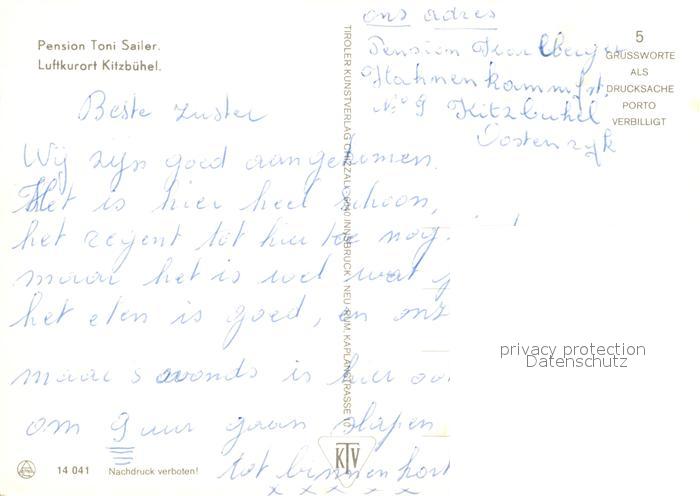 Pension Toni Sailer.
Luftkurort Kitzbühel.
ons adres
Pension
Hahnenkammstr.
No 9 Kitzbuhel
Oostenryk
5
GRUSSWORTE
ALS
DRUCKSACHE
PORTO
VERBILLIGT
Beste zuster
Wij zijn goed aangekomen.
Het is hier heel schoon,
het regent tot hier toe nog.
maar het is wel wat
het eten is goed, en
maar s avonds is hier
om 9 uur gaan slapen
tot binnen kort
x x x x x
TIROLER KUNSTVERLAG CHIZZALI, 6040 INNSBRUCK-NEU-RUM, KAPLANSTRASSE
KTV
14 041 Nachdruck verboten!
privacy protection
Datenschutz